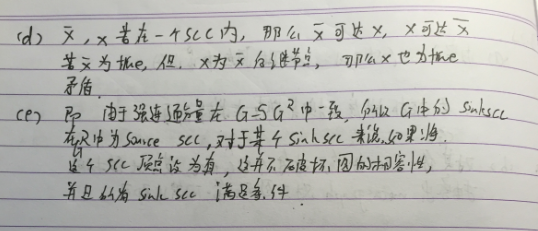 (d) x̄, x 若在一个scc内, 那么 x̄ 可达 x, x 可达 x̄
若 x̄ 为true, 但 x为 x̄ 后继节点, 那么x也为true
矛盾.
(e) 即 由于强连通分量在 G与G² 中一致, 所以 G中的 sinkscc
在 中为 source scc, 对于某个 sink scc 来说, 如果将
这个 scc 顶点设为真, 这并不破坏 图的相容性,
并且 sink scc 满足条件